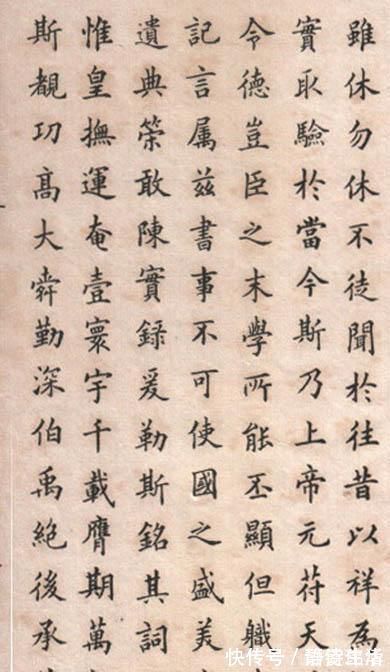 雖休勿休不徒聞於往昔以祥為
實取驗於當今斯乃上帝元苻天
令德豈臣之末學所能丕顯但職
記言属茲書事不可使國之盛美
遺典筞敢陳實録爰勒斯銘其詞
惟皇撫運奄壹寰宇千載膺期萬
斯覩功髙大舜勤深伯禹絕後承
快传号/